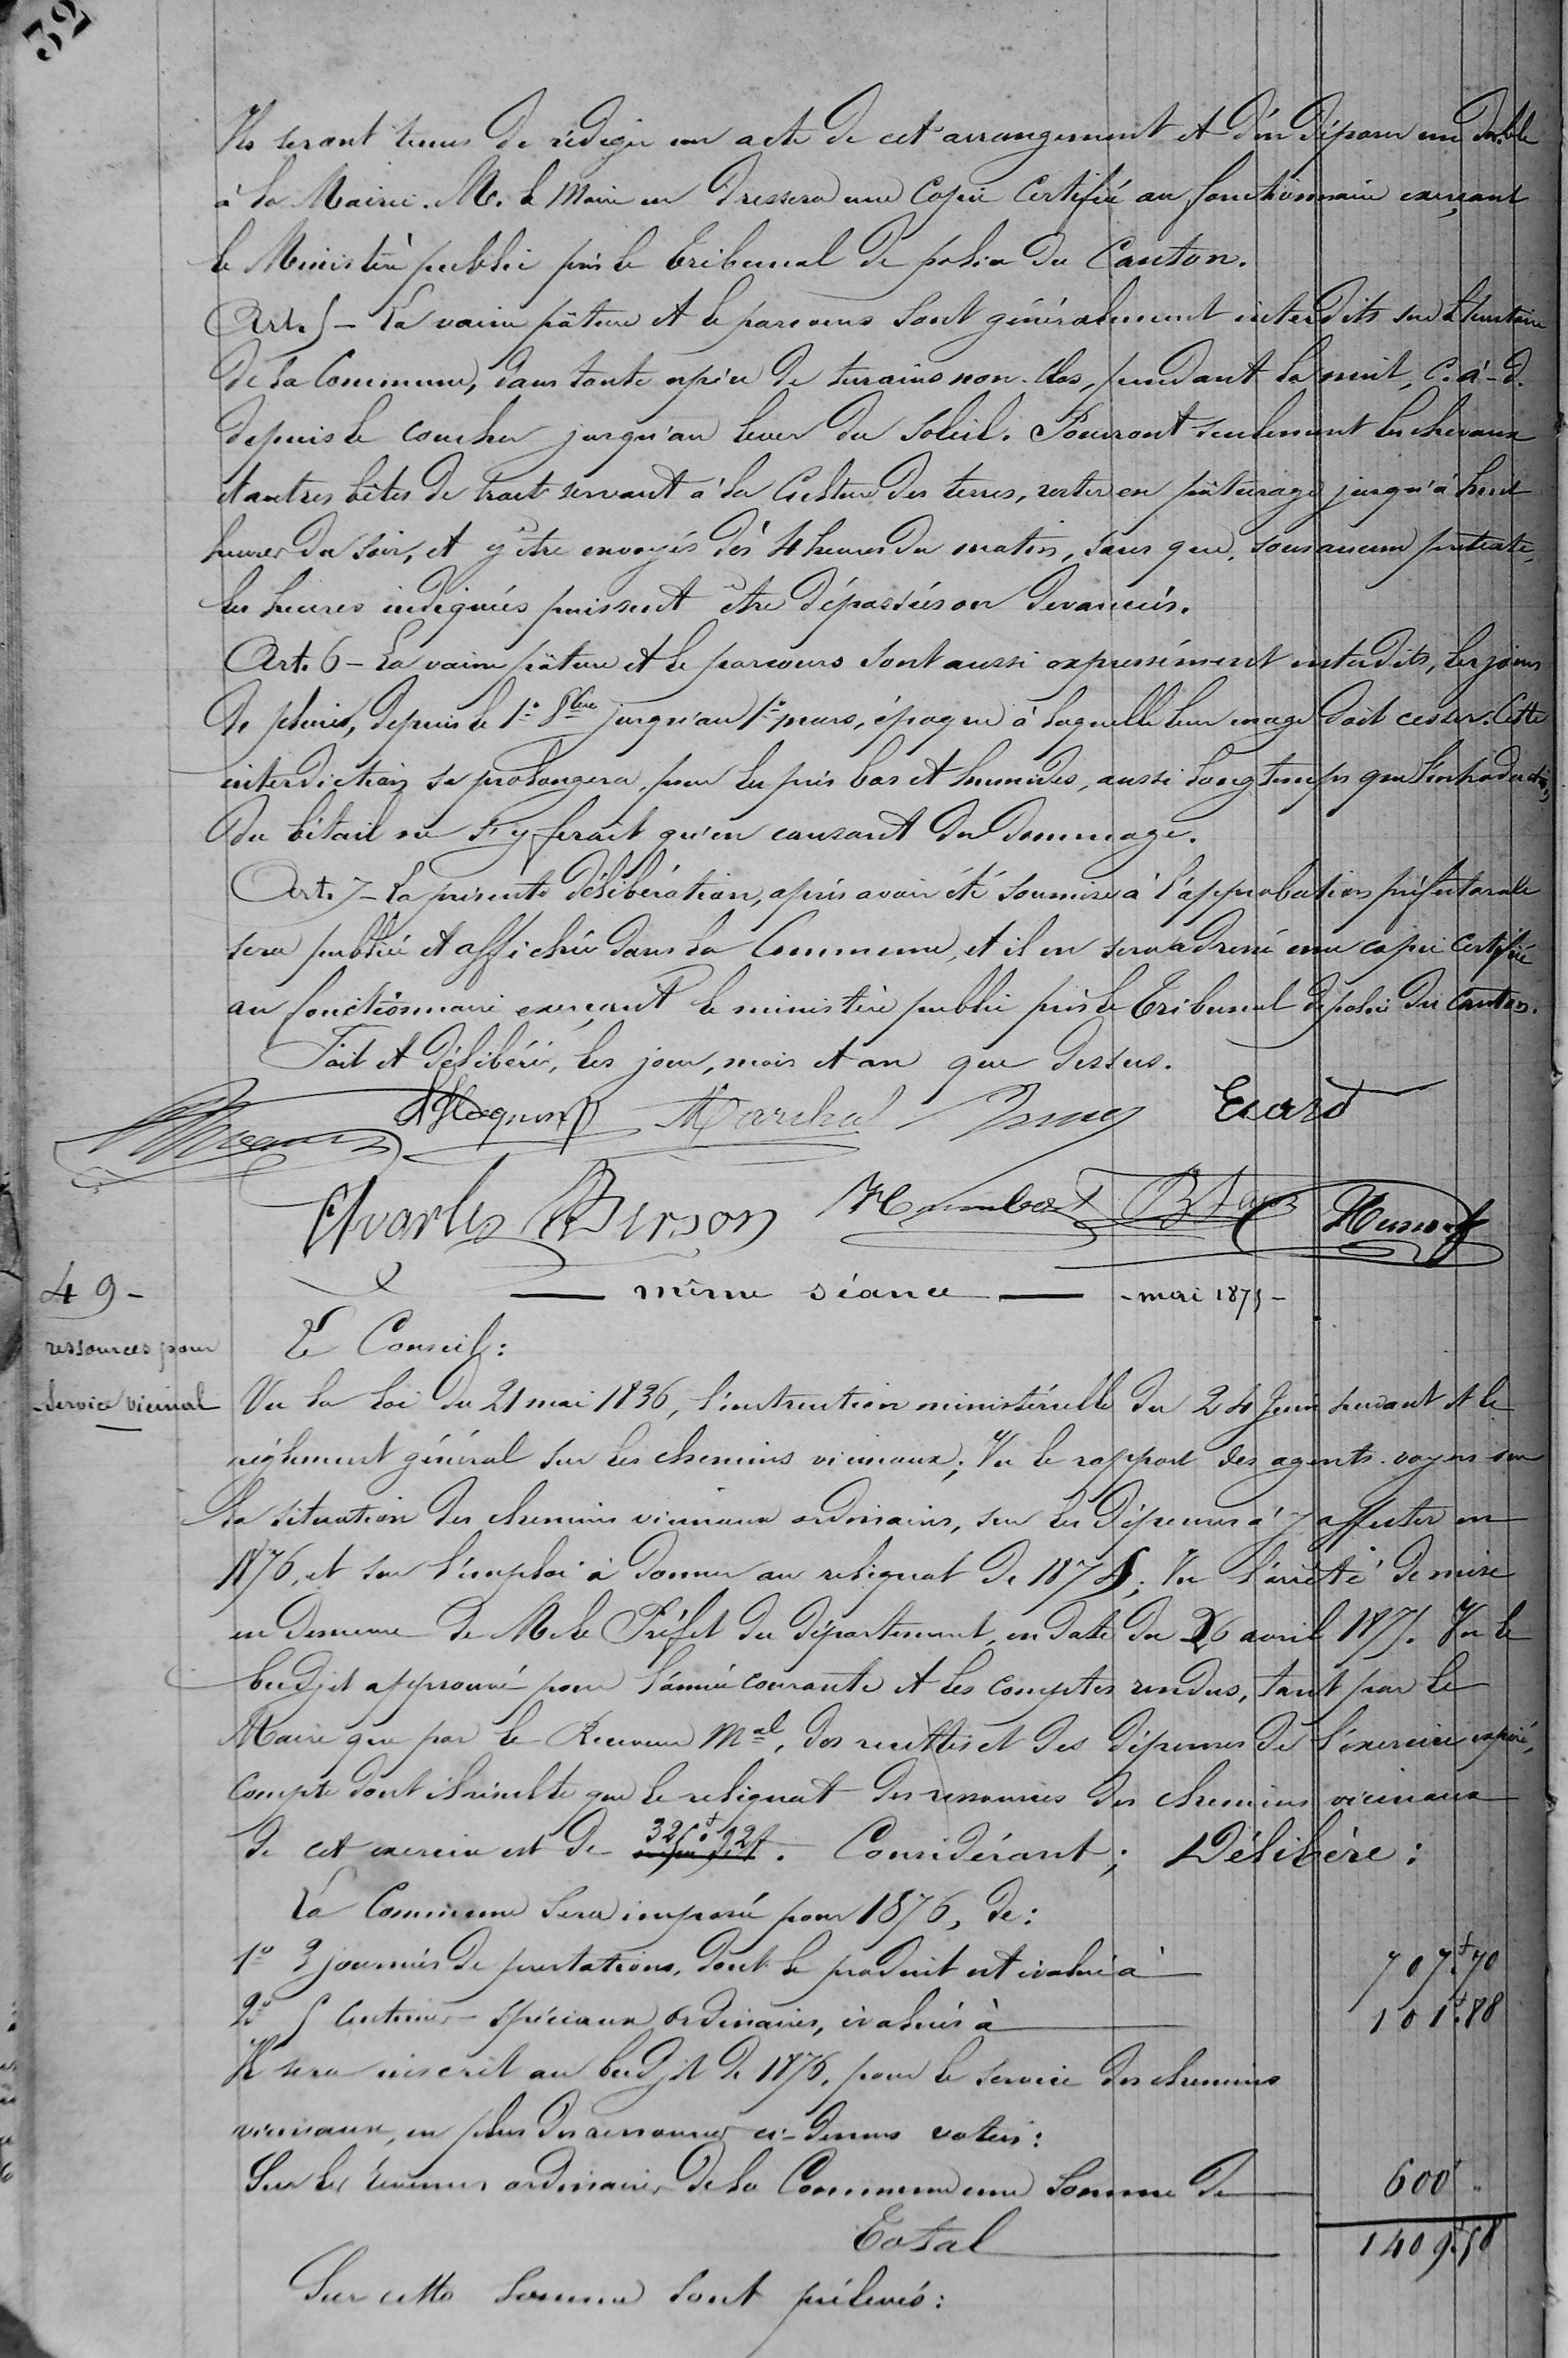 32
Ils seront tenus de rédiger un acte de cet arrangement et d'en déposer un double
à la Mairie. M. le Maire en dressera une copie certifiée au fonctionnaire exerçant
le Ministère public près le Tribunal de police du Canton.
Art. 5 - La vaine pâture et le parcours sont généralement interdits sur le territoire
de la Commune, dans toute espèce de terrains non-clos, pendant la nuit, c.-à-d.
depuis le coucher jusqu'au lever du soleil. Pourront seulement les chevaux
et autres bêtes de trait servant à la culture des terres, rester en pâturage jusqu'à huit
heures du soir, et y être envoyés dès 4 heures du matin, sans que, sous aucun prétexte,
les heures indiquées puissent être dépassées ou devancées.
Art. 6 - La vaine pâture et le parcours sont aussi expressément interdits, les jours
de pluie, depuis le 1er 8bre jusqu'au 1er mars, époque à laquelle leur usage doit cesser. Cette
interdiction se prolongera, pour les prés bas et humides, aussi longtemps que l'introduction
du bétail ne s'y ferait qu'en causant du dommage.
Art. 7 - La présente délibération, après avoir été soumise à l'approbation préfectorale
sera publiée et affichée dans la Commune, et il en sera adressé une copie certifiée
au fonctionnaire exerçant le ministère public près le Tribunal de police du Canton.
Fait et délibéré, les jour, mois et an que dessus.
Marchal Evard
Charles Pierson Humbert Husson
49 - même séance - mai 1875 -
ressources pour
service vicinal
Le Conseil:
Vu la loi du 21 mai 1836, l'instruction ministérielle du 24 Juin suivant et le
règlement général sur les chemins vicinaux; Vu le rapport des agents-voyers sur
la situation des chemins vicinaux ordinaires, sur les dépenses à y affecter en
1876, et sur l'emploi à donner au reliquat de 1874; Vu l'arrêté de mise
en demeure de M. le Préfet du département, en date du 26 avril 1875. Vu le
budjet approuvé pour l'année courante et les comptes rendus, tant par le
Maire que par le Receveur Mal, des recettes et des dépenses de l'exercice expiré,
compte dont il résulte que le reliquat des ressources des chemins vicinaux
de cet exercice est de . Considérant; Délibère:
La Commune sera imposée pour 1876, de:
1° 3 journées de prestations, dont le produit est évalué à 707f.70
2° 5 centimes spéciaux ordinaires, évalués à 101f.88
Il sera inscrit au budjet de 1876, pour le service des chemins
vicinaux, en plus des ressources ci-dessus votées:
Sur les revenus ordinaires de la Commune une somme de 600f "
Total 1409f.58
Sur cette somme sont prélevés: